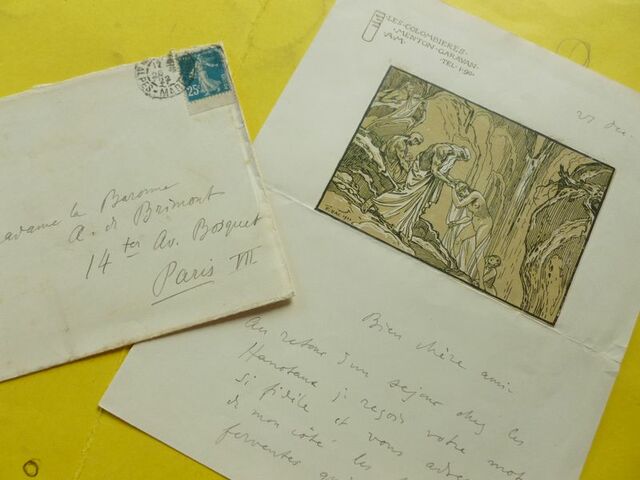 25c
Madame la Baronne
A. de Brimont
14 ter Av. Bosquet
Paris VII
LES·COLOMBIÈRES·
·MENTON·GARAVAN·
·A.M·
TEL·1·90·
27
Bien chère amie
Au retour d'un séjour chez les
Hanotaux je reçois votre mot
si fidèle et vous adresse
de mon côté les
ferventes